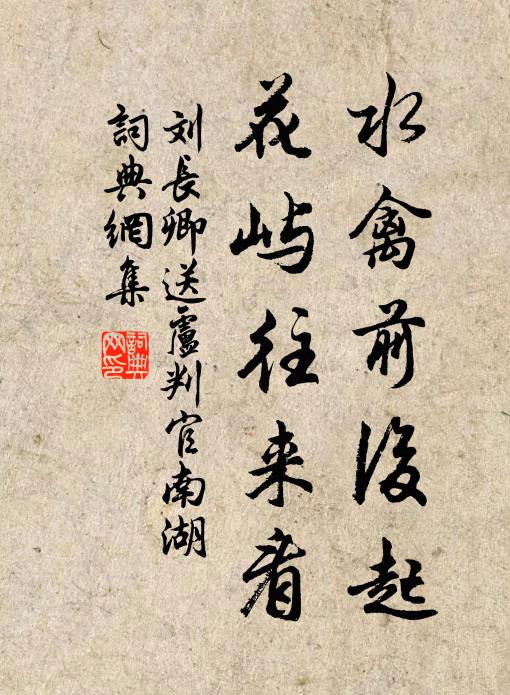 水禽前後起
花屿往来看
刘長卿送盧判官南湖
詞典網集
詞典网印